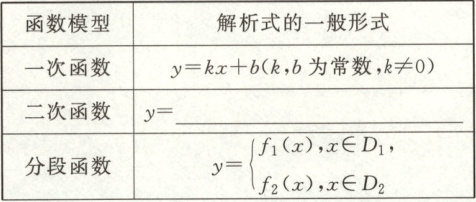 函数模型 解析式的一般形式
一次函数 y=kx+b(k,b为常数,k≠0)
二次函数 y=____________________
分段函数 y={f₁(x),x∈D₁,
f₂(x),x∈D₂